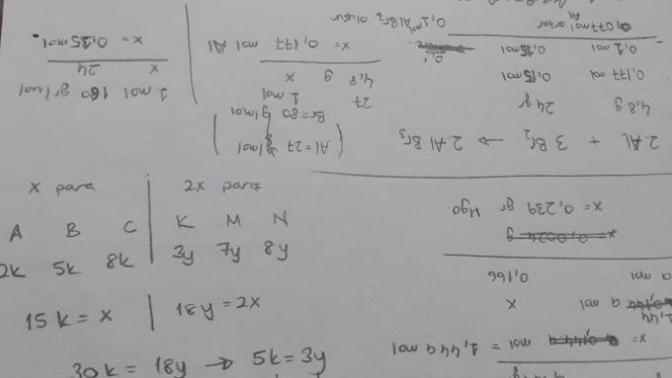 x para | 2x para
A B C | K M N
2k 5k 8k | 3y 7y 8y
15k = x | 18y = 2x
30k = 18y → 5k = 3y
2 Al + 3 Br₂ → 2 AlBr₃
(Al = 27 g/mol
Br = 80 g/mol)
4,8 g 24 gr
0,177 mol 0,15 mol
0,1 mol 0,15 mol
0,077 mol Al artar
0,1 mol AlBr₃ oluşur
27 g 1 mol
4,8 g x
x = 0,177 mol Al
1 mol 160 gr/mol
x 24
x = 0,15 mol
x = 1,449 mol
a mol x
a mol 0,166
x = 0,239 gr